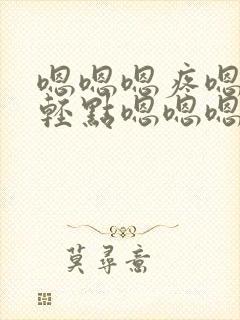 嗯嗯嗯疼嗯
輕點嗯嗯嗯
莫尋喬